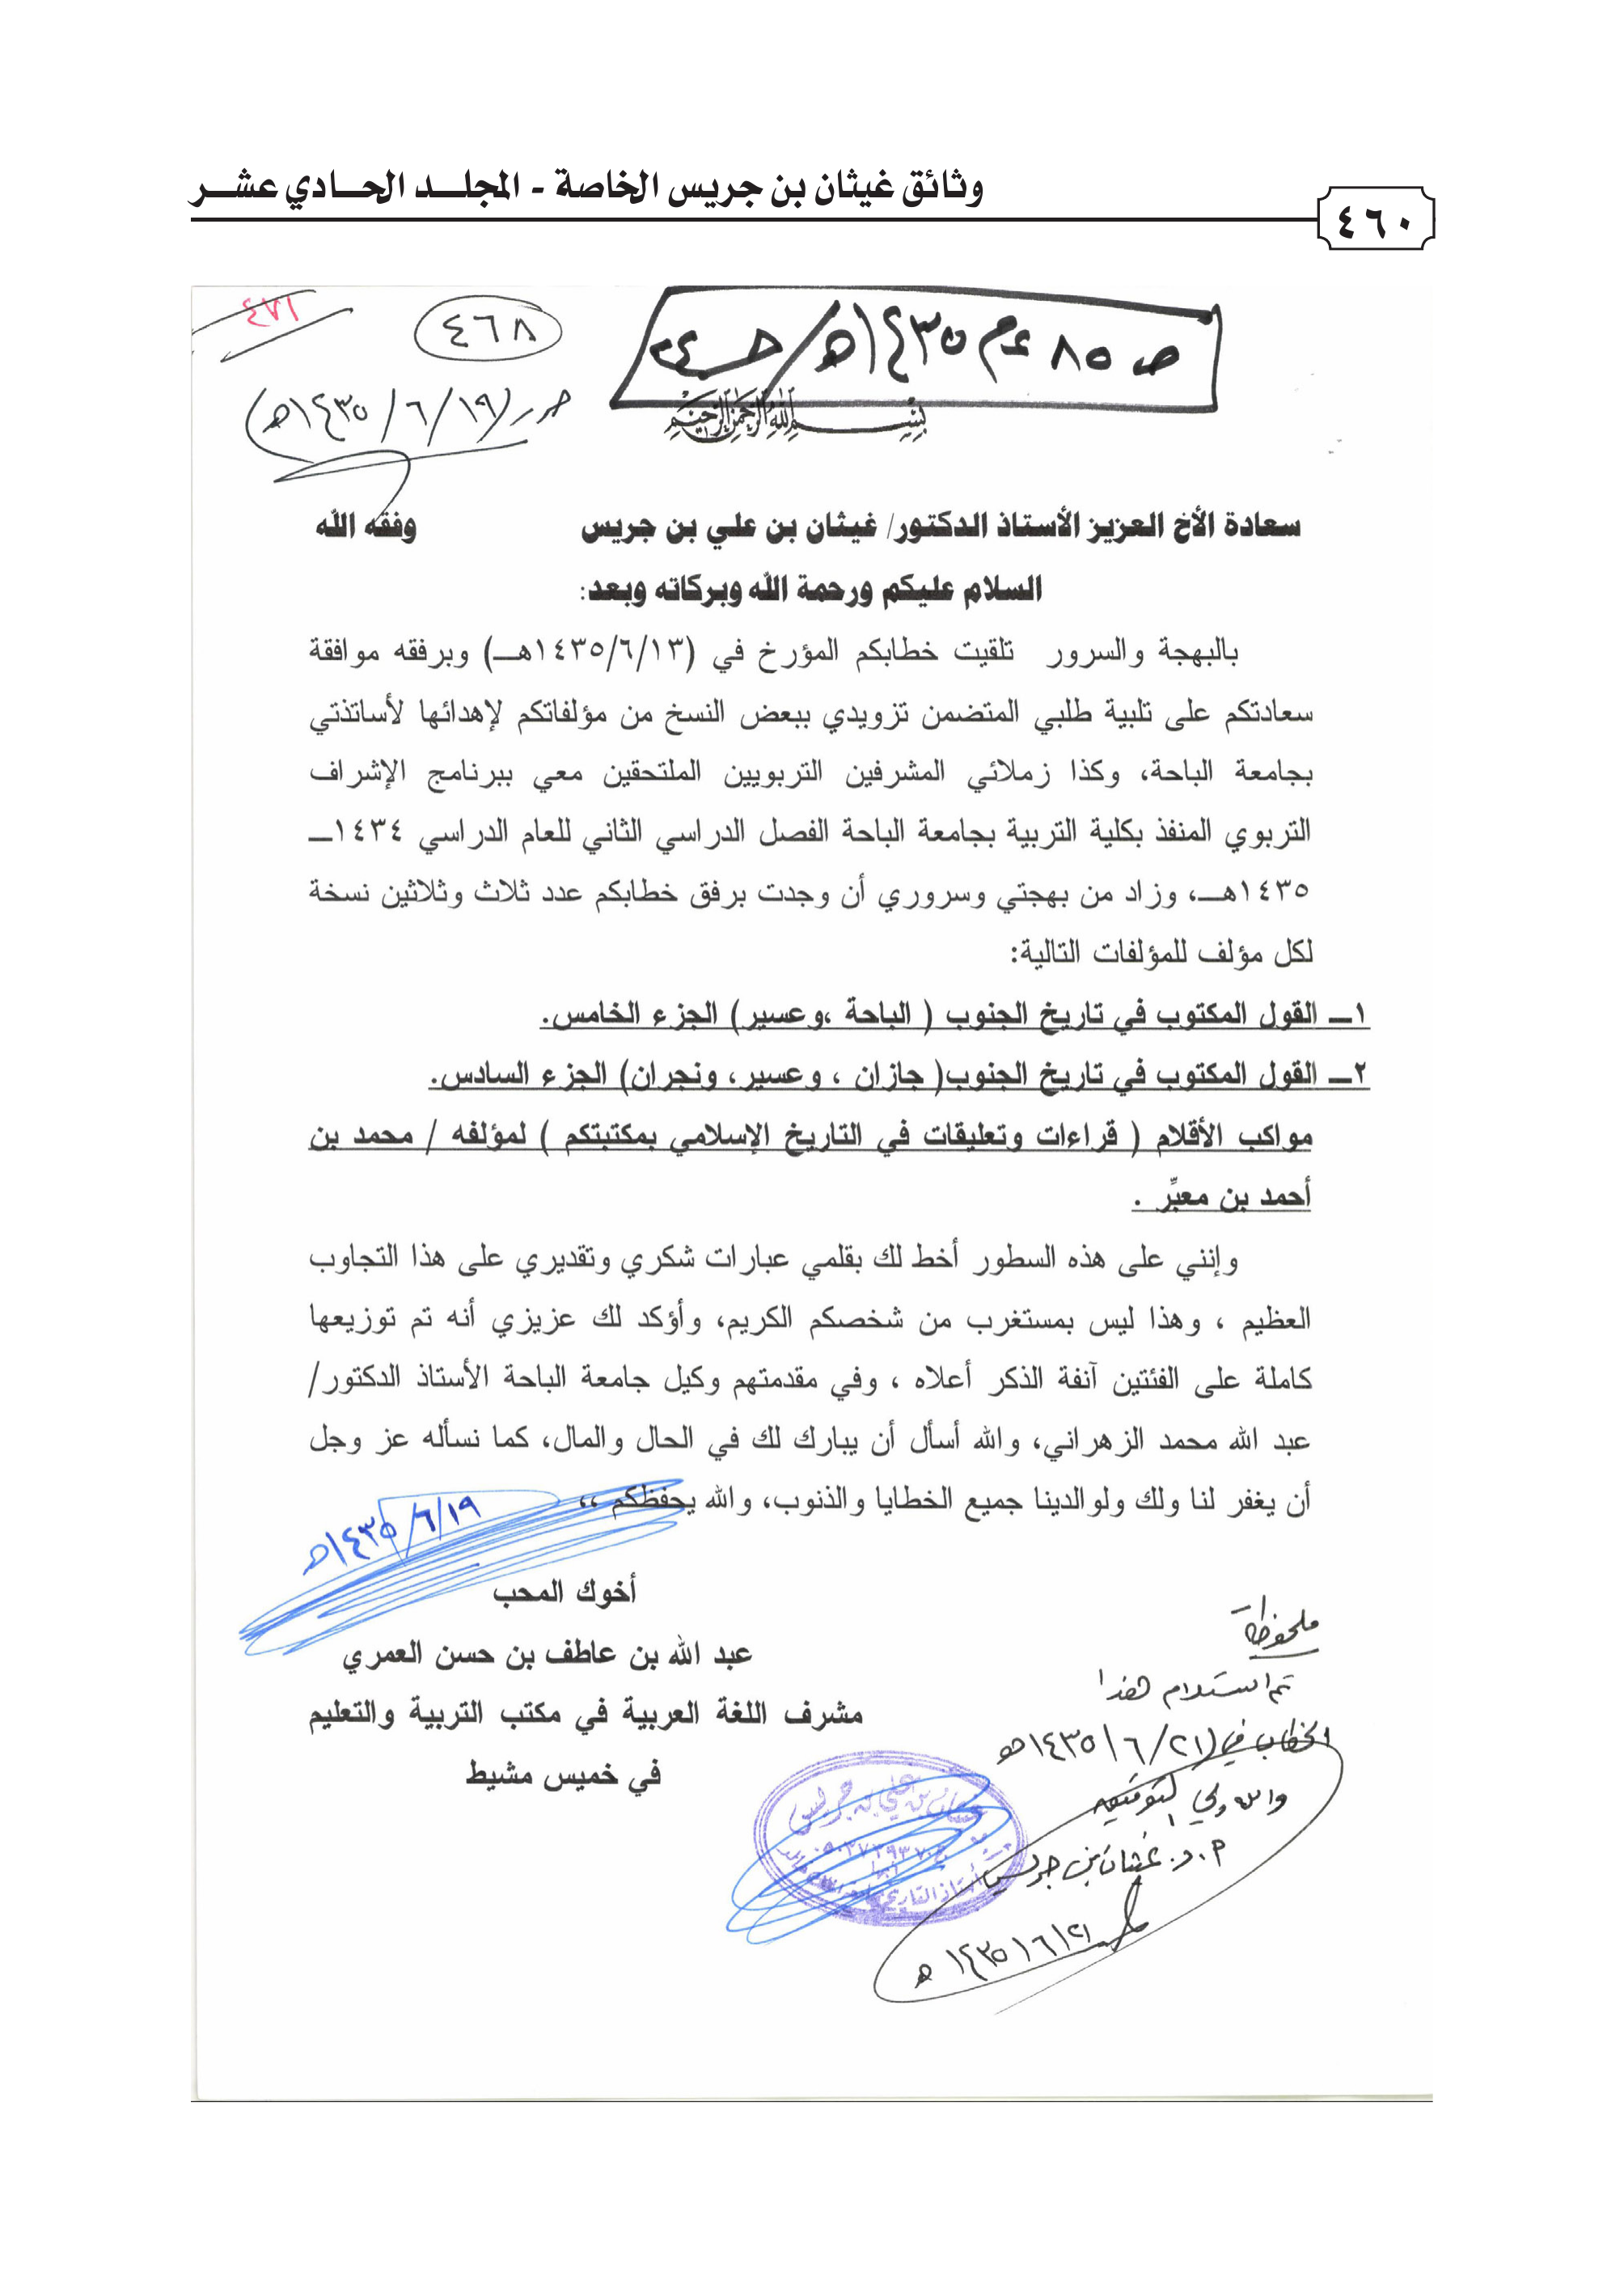 وثائق غيثان بن جريس الخاصة - المجلـــد الحـــادي عشـــر
٤٦٠
٤٧١
٤٦٨
ص ٨٥ ١٤٣٥هـ /
١٤٣٥/٦/١٩هـ
بسم الله الرحمن الرحيم
سعادة الأخ العزيز الأستاذ الدكتور/ غيثان بن علي بن جريس وفقه الله
السلام عليكم ورحمة الله وبركاته وبعد:
بالبهجة والسرور تلقيت خطابكم المؤرخ في (١٤٣٥/٦/١٣هـــ) وبرفقه موافقة
سعادتكم على تلبية طلبي المتضمن تزويدي ببعض النسخ من مؤلفاتكم لإهدائها لأساتذتي
بجامعة الباحة، وكذا زملائي المشرفين التربويين الملتحقين معي ببرنامج الإشراف
التربوي المنفذ بكلية التربية بجامعة الباحة الفصل الدراسي الثاني للعام الدراسي ١٤٣٤ــ
١٤٣٥هـــ، وزاد من بهجتي وسروري أن وجدت برفق خطابكم عدد ثلاث وثلاثين نسخة
لكل مؤلف للمؤلفات التالية:
١ــ القول المكتوب في تاريخ الجنوب ( الباحة ،وعسير) الجزء الخامس.
٢ــ القول المكتوب في تاريخ الجنوب( جازان ، وعسير، ونجران) الجزء السادس.
مواكب الأقلام ( قراءات وتعليقات في التاريخ الإسلامي بمكتبتكم ) لمؤلفه / محمد بن
أحمد بن معبِّر .
وإنني على هذه السطور أخط لك بقلمي عبارات شكري وتقديري على هذا التجاوب
العظيم ، وهذا ليس بمستغرب من شخصكم الكريم، وأؤكد لك عزيزي أنه تم توزيعها
كاملة على الفئتين آنفة الذكر أعلاه ، وفي مقدمتهم وكيل جامعة الباحة الأستاذ الدكتور/
عبد الله محمد الزهراني، والله أسأل أن يبارك لك في الحال والمال، كما نسأله عز وجل
أن يغفر لنا ولك ولوالدينا جميع الخطايا والذنوب، والله يحفظكم ،،
١٤٣٥/٦/١٩هـ
أخوك المحب
عبد الله بن عاطف بن حسن العمري
مشرف اللغة العربية في مكتب التربية والتعليم
في خميس مشيط
ملحوظة
تم استلام هذا
الخطاب في (١٤٣٥/٦/٢١هـ
والله ولي التوفيق
أ.د. غيثان بن جريس
١٤٣٥/٦/٢١هـ
غيثان بن علي بن جريس
أبها
أستاذ التاريخ